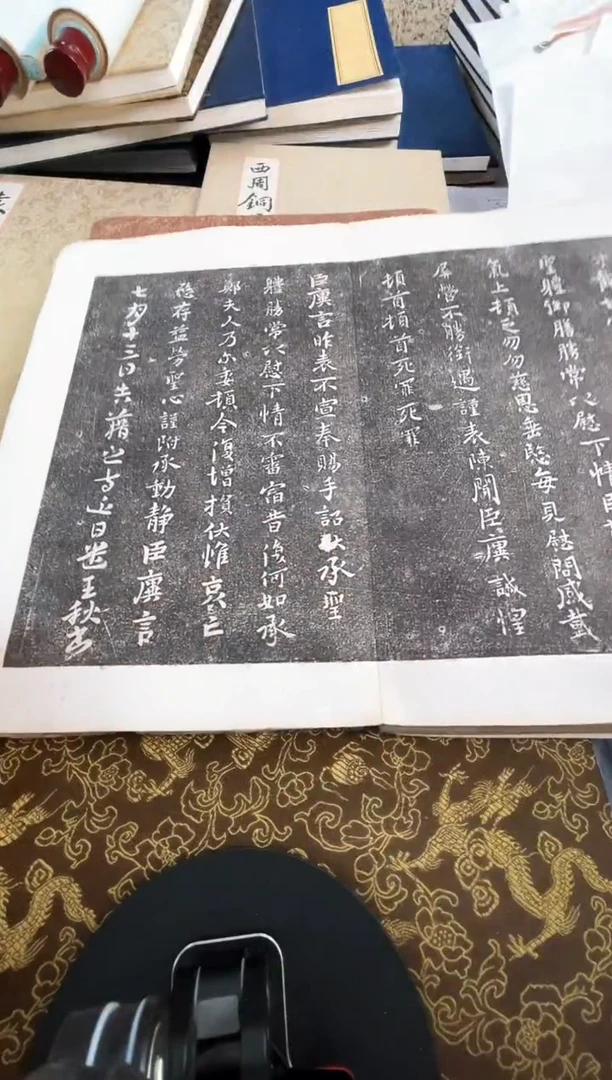 西周銅
聖體御膳勝常以慰下情
氣上頓乏勿勿慈恩垂愍每見慰問感戴
屏營不勝銜遇謹表陳聞臣廙誠惶
頓首頓首死罪死罪
臣廙言昨表不宣奉賜手詔伏承聖
體勝常以慰下情不審宿昔復何如承
鄭夫人乃爾委頓今復增損伏惟哀亡
愍存益勞聖心謹附承動静臣廙言
七月十三日告藉之等近日